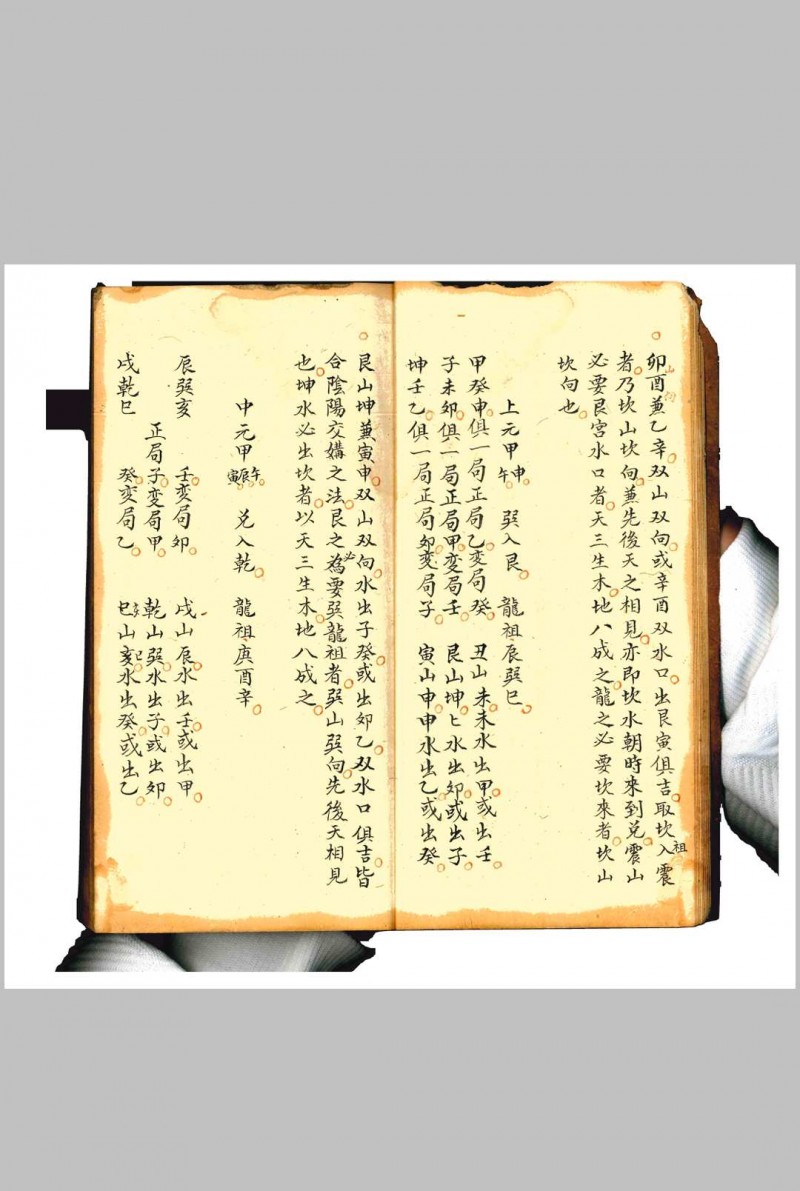 卯酉兼乙辛双山双向或辛酉双水口出艮寅俱吉取坎入震
山向
祖
者乃坎山坎向兼先後天之相見亦即坎水朝時来到兑震山
必要艮宮水口者天三生木地八成之龍之必要坎來者坎山
坎向也
上元甲申午 巽入艮 龍祖辰巽巳
甲癸申俱一局正局乙变局癸 丑山未未水出甲或出壬
子未卯俱一局正局甲变局壬 艮山坤〻水出卯或出子
坤壬乙俱一局正局卯变局子 寅山申申水出乙或出癸
艮山坤兼寅申双山双向水出子癸或出卯乙双水口俱吉皆
合陰陽交媾之法艮之為要巽龍祖者巽山巽向先後天相見
必
也坤水必出坎者以天三生木地八成之
中元甲午辰寅 兑入乾 龍祖庚酉辛
辰巽亥 壬变局卯 戌山辰水出壬或出甲
正局子变局甲 乾山巽水出子或出卯
戌乾巳 癸变局乙 山亥水出癸或出乙